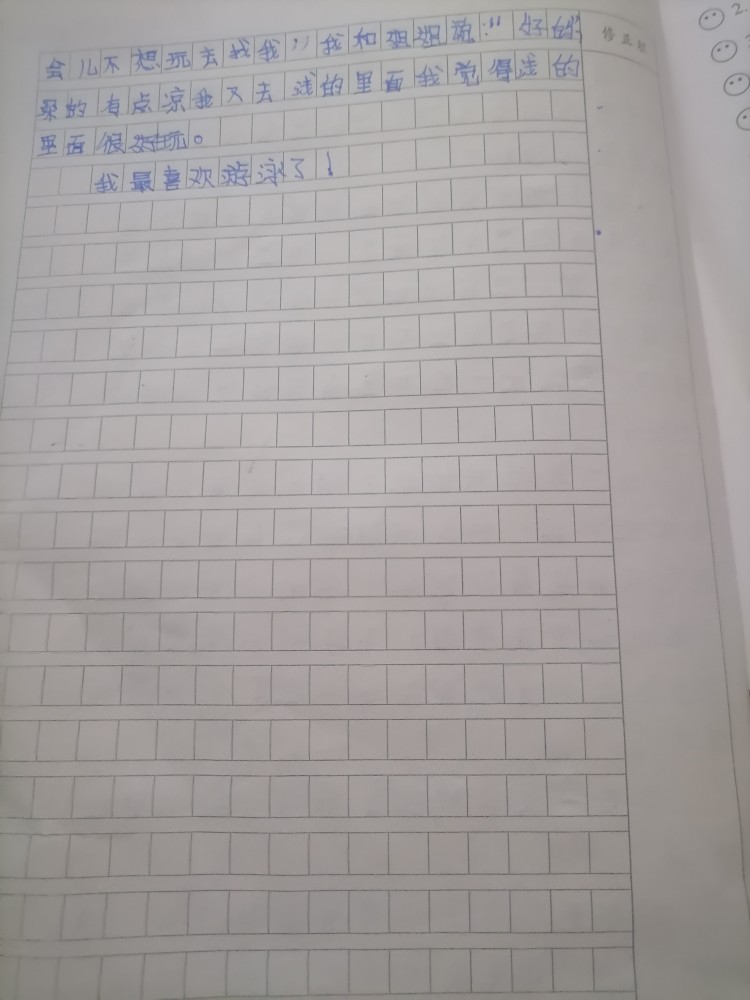 会儿不想玩去找我”我和姐姐说：“好的
桑的有点凉我又去浅的里面我觉得浅的
里面很好玩。
我最喜欢游泳了！
修正栏
2.